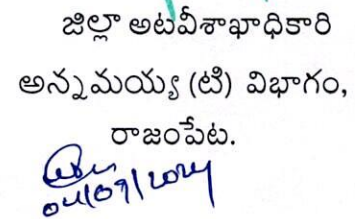 జిల్లా అటవీశాఖాధికారి
అన్నమయ్య (టి) విభాగం,
రాజంపేట.
04/09/2024